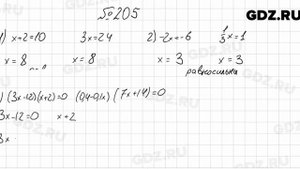 №205
GDZ.RU
1) x+2=10   3x=24   2) -2x=-6   1/3 x=1
x=8   x=8   x=3   x=3
равносильны
(3x-12)(x+2)=0   (0,4-0,1x)(7x+14)=0
3x-12=0   x+2
3x
GDZ.RU